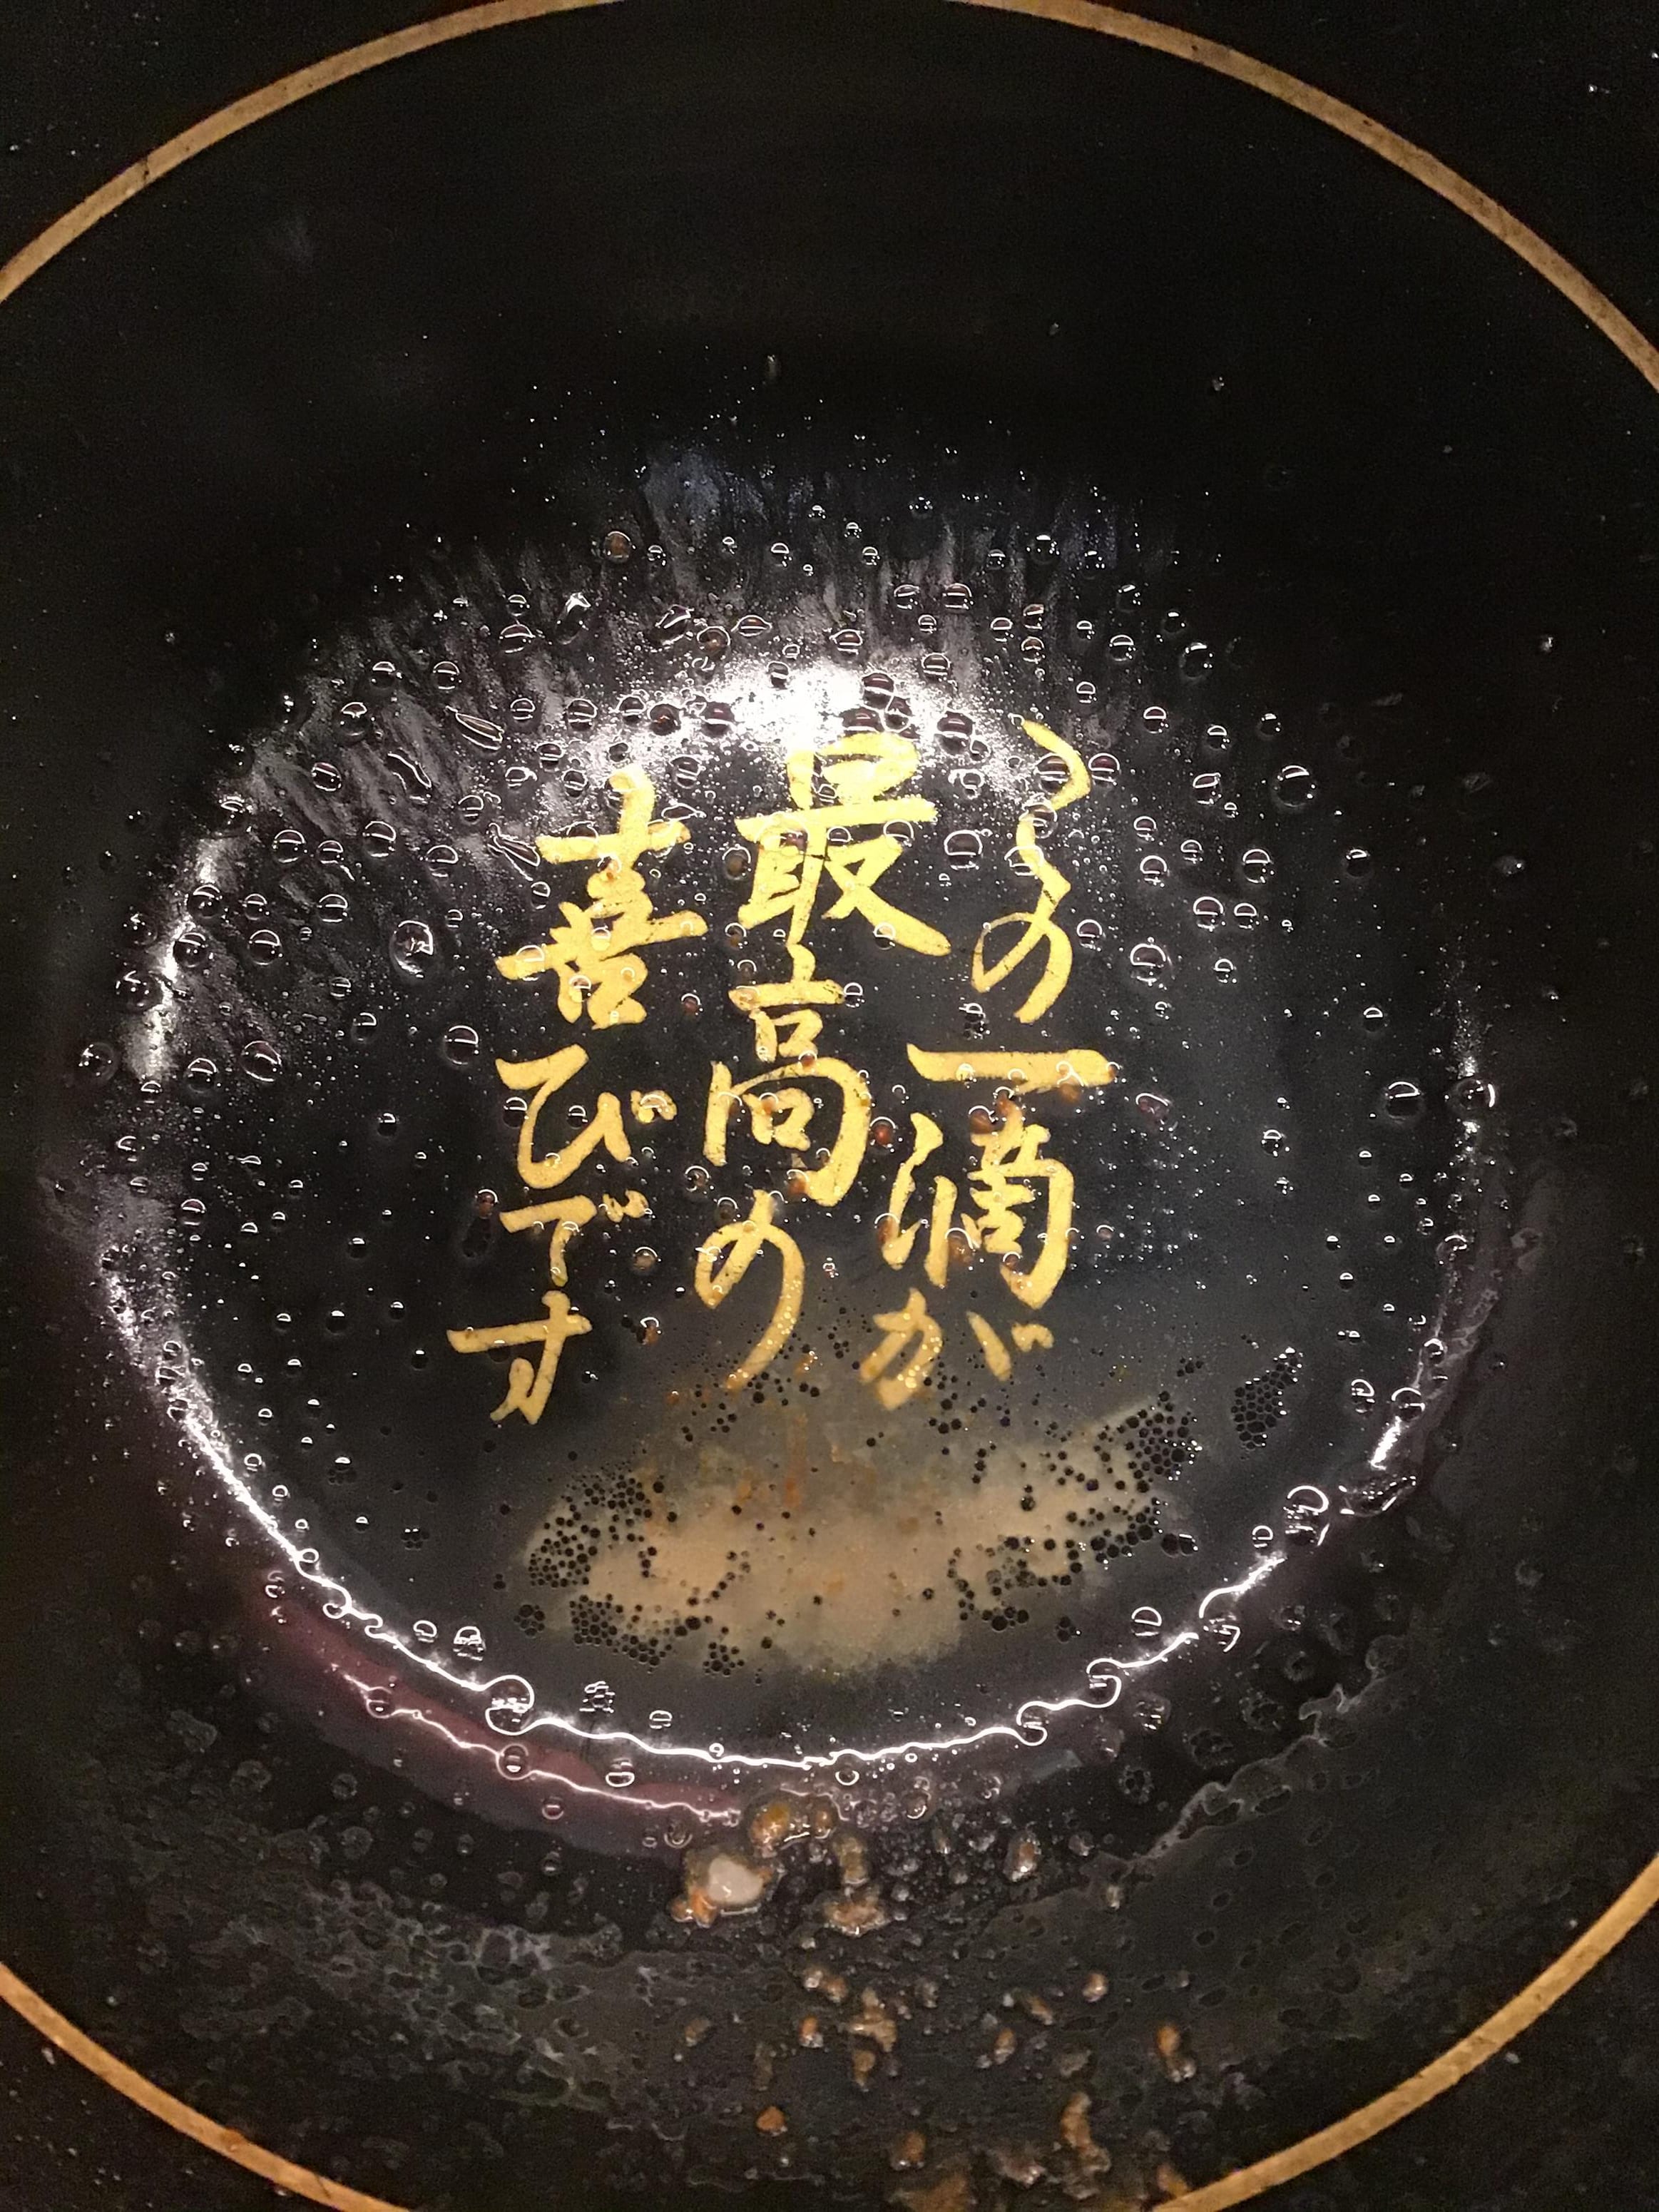 この一滴が
最高の
喜びです